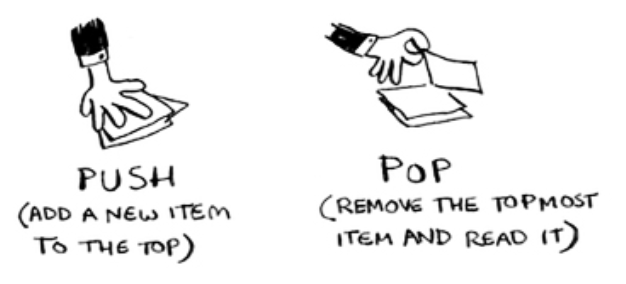 PUSH
(ADD A NEW ITEM
TO THE TOP)
POP
(REMOVE THE TOPMOST
ITEM AND READ IT)